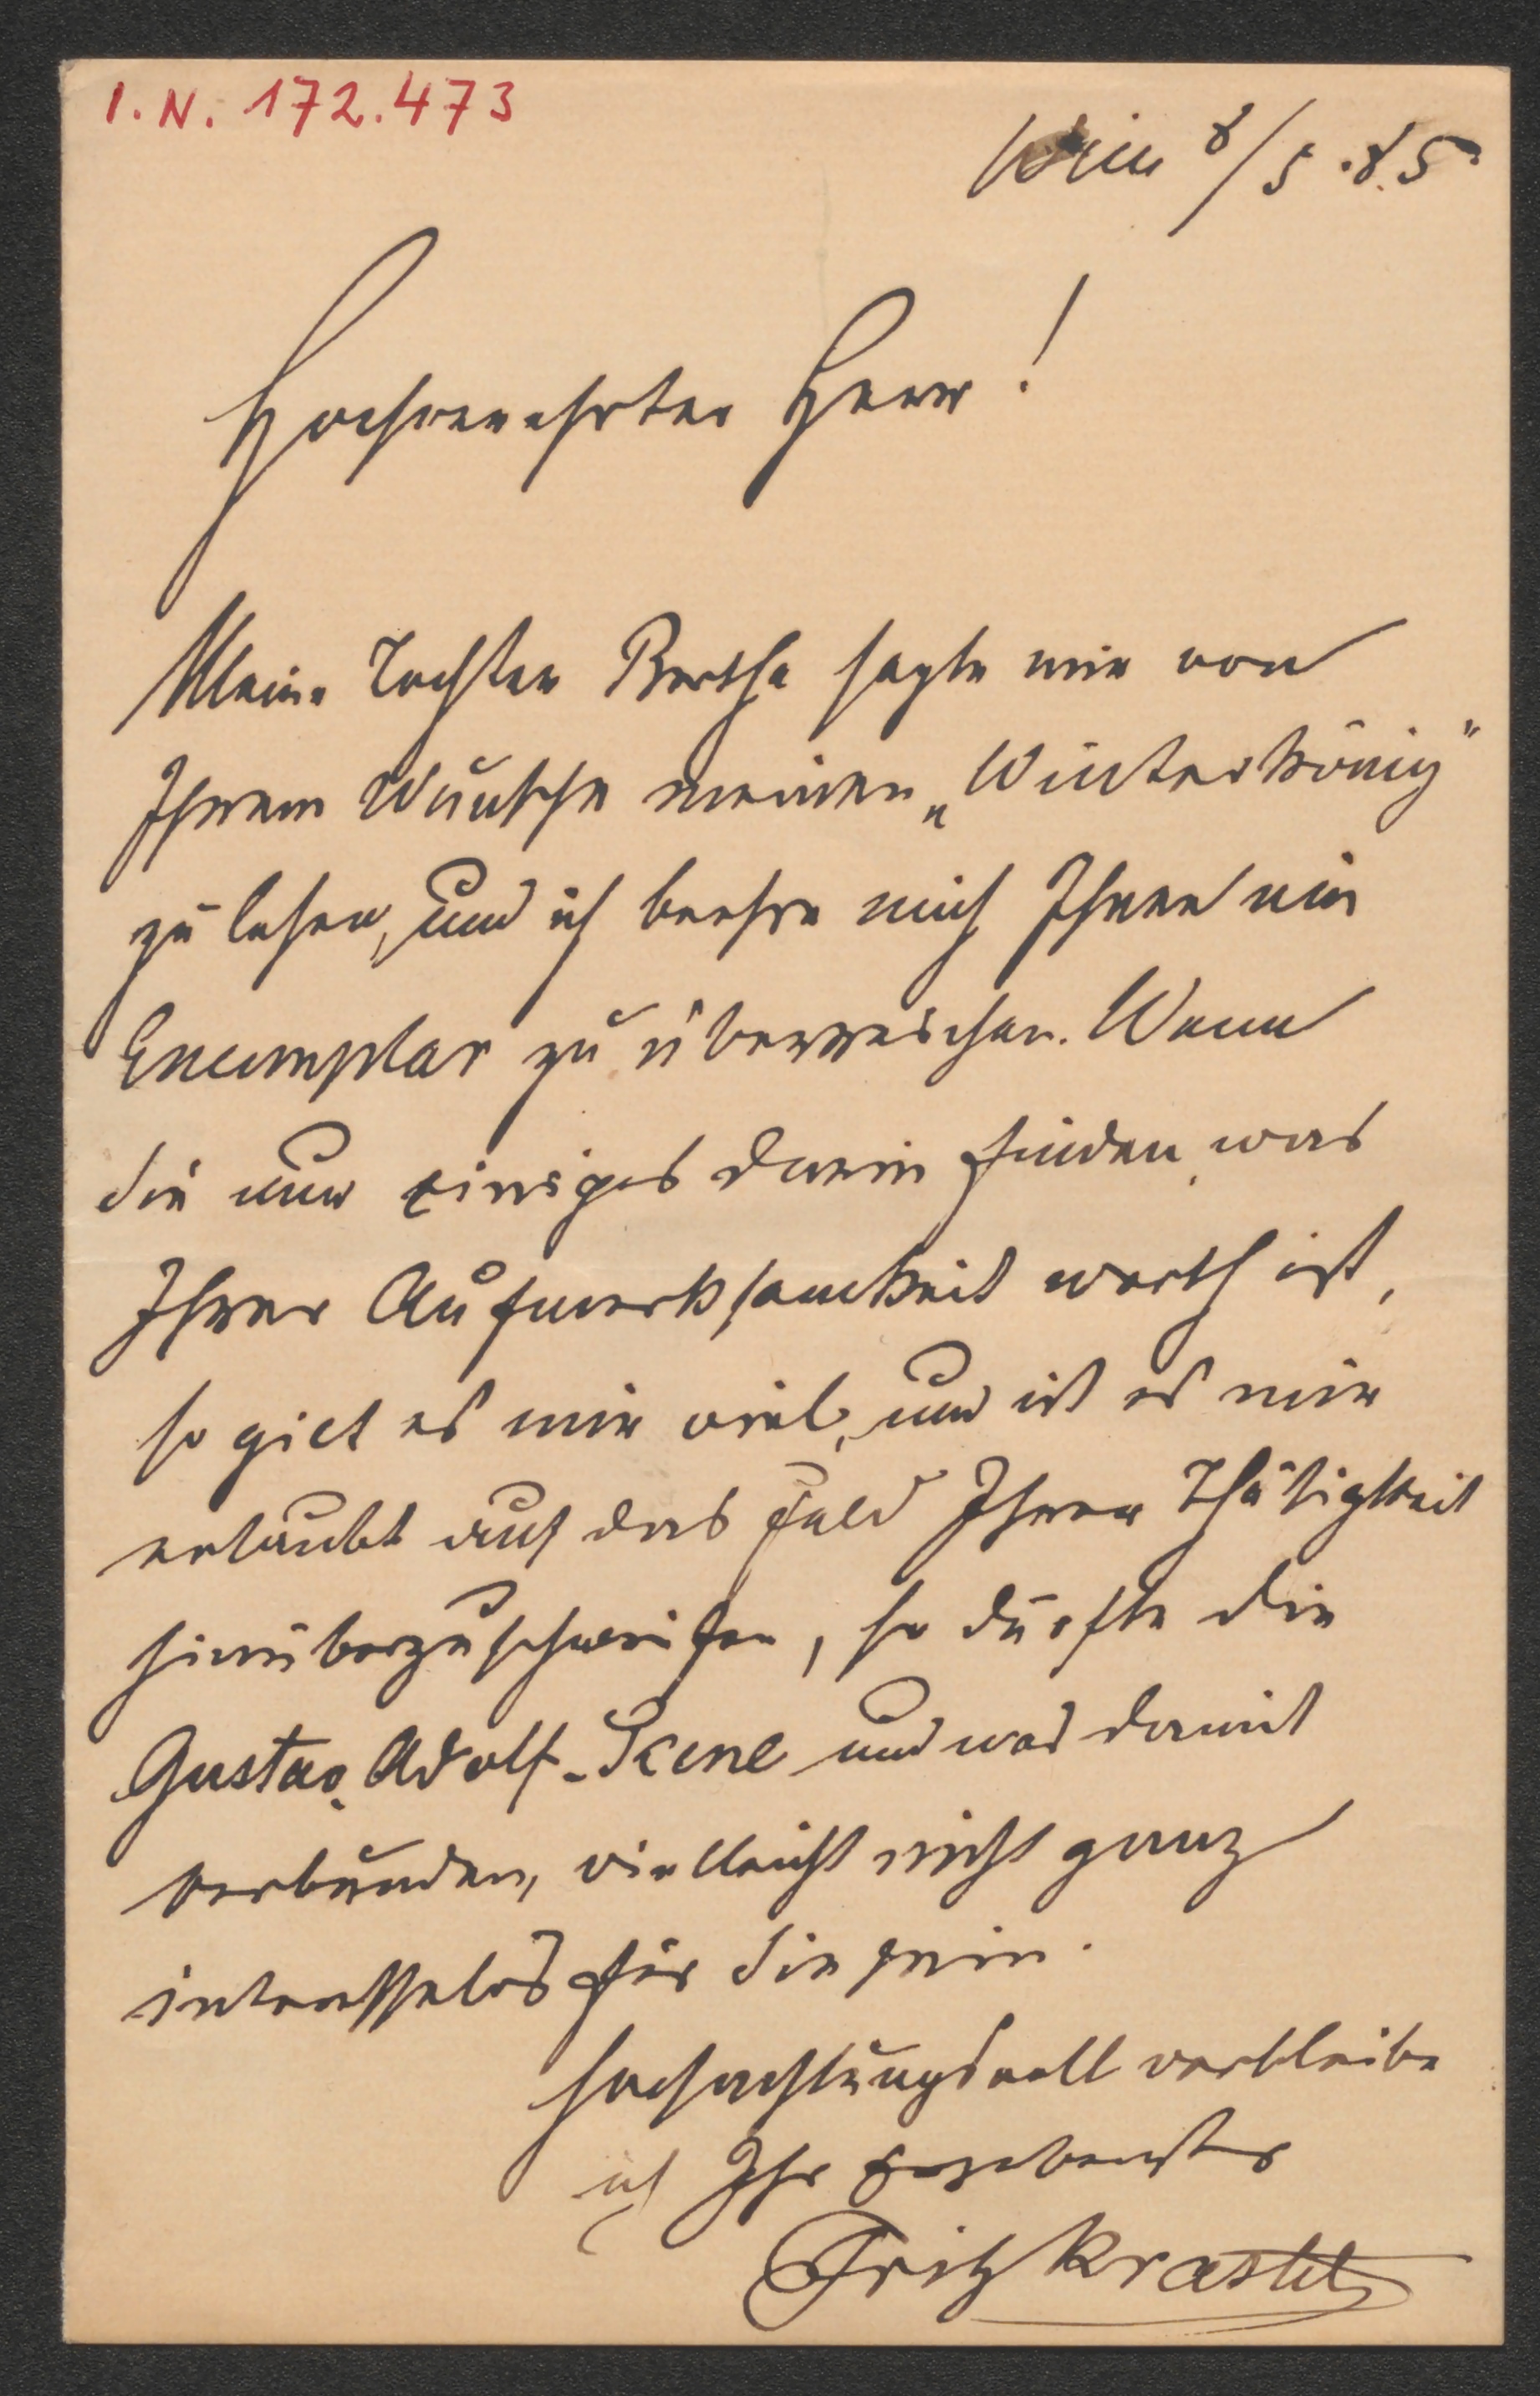 I.N. 172.473
Wien 8/5.85
Hochverehrter Herr!
Meine Tochter Bertha sagte mir von
Ihrem Wunsche meinen „Winterkönig“
zu lesen, und ich beehre mich Ihnen ein
Exemplar zu überreichen. Wenn
Sie nur einiges darin finden, was
Ihrer Aufmerksamkeit werth ist,
so gilt es mir viel, und ist es mir
erlaubt auf das Feld Ihrer Thätigkeit
hinüberzuschweifen, so dürfte die
Gustav-Adolf-Scene und was damit
verbunden, vielleicht nicht ganz
interesselos für Sie sein.
Hochachtungsvoll verbleibe
ich Ihr ergebenster
Fritz Krastel